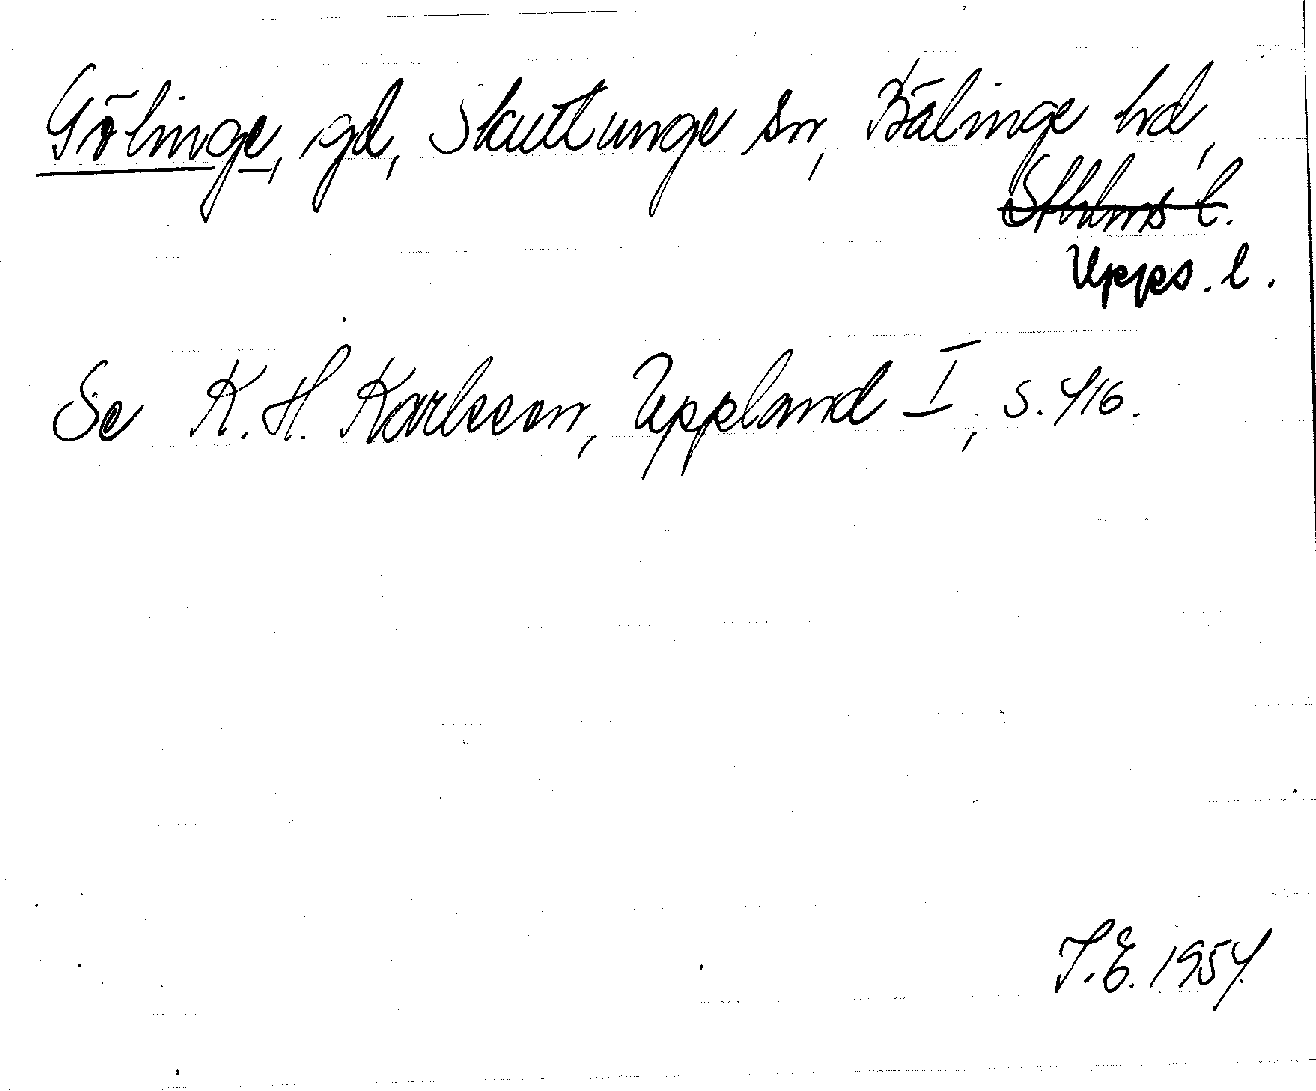 Gölinge, gd, Skuttunge sn, Bälinge hd,
Sthlms l.
Upps. l.
Se K. H. Karlsson, Uppland I, s. 416.
I.E. 1954.